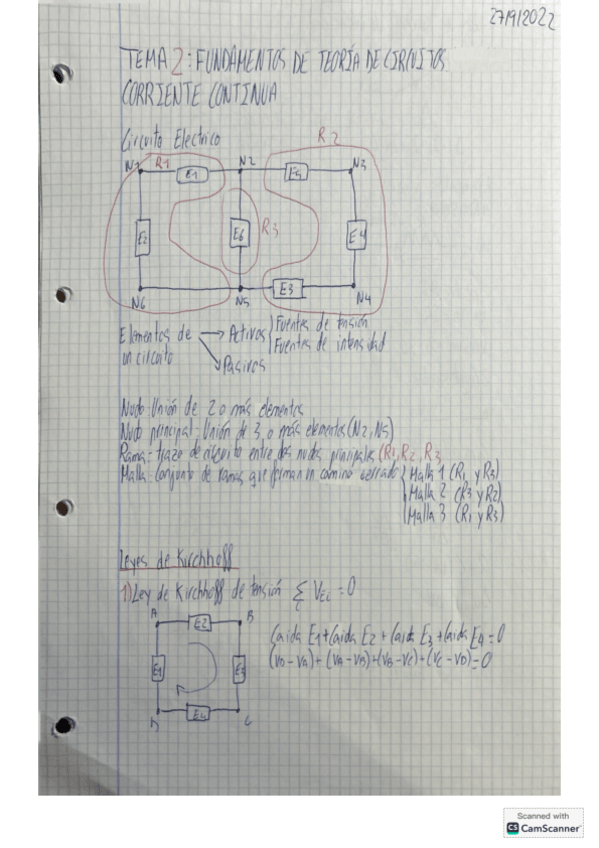 27/9/2022
TEMA 2: FUNDAMENTOS DE TEORÍA DE CIRCUITOS
CORRIENTE CONTINUA
Circuito Electrico
R2
N1 R1 E1 N2 E5 N3
E2 E6 R3 E4
N6 N5 E3 N4
Elementos de un circuito → Activos { Fuentes de tensión
Fuentes de intensidad
→ Pasivos
Nudo: Unión de 2 o más elementos
Nudo principal: Unión de 3 o más elementos (N2, N5)
Rama = trazo de circuito entre dos nudos principales (R1, R2, R3
Malla: Conjunto de ramas que forman un camino cerrado { Malla 1 (R1 y R3)
Malla 2 (R3 y R2)
Malla 3 (R1 y R3)
Leyes de Kirchhoff
1) Ley de Kirchhoff de tensión Σ VEi = 0
A E2 B
E1 E3
D E4 C
Caida E1 + Caida E2 + Caida E3 + Caida E4 = 0
(VD - VA) + (VA - VB) + (VB - VC) + (VC - VD) = 0
Scanned with
CS CamScanner